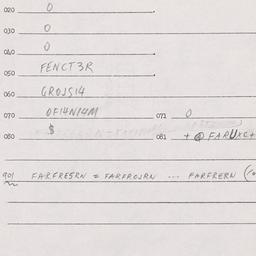 020 0
030 0
040 0
050 FENCT3R
060 GROJSI4
070 OFI4NI4M 071 0
080 $ 081 + @ FARUXC+
901 FARFRESRN = FARFROJRN ... FARFRERN